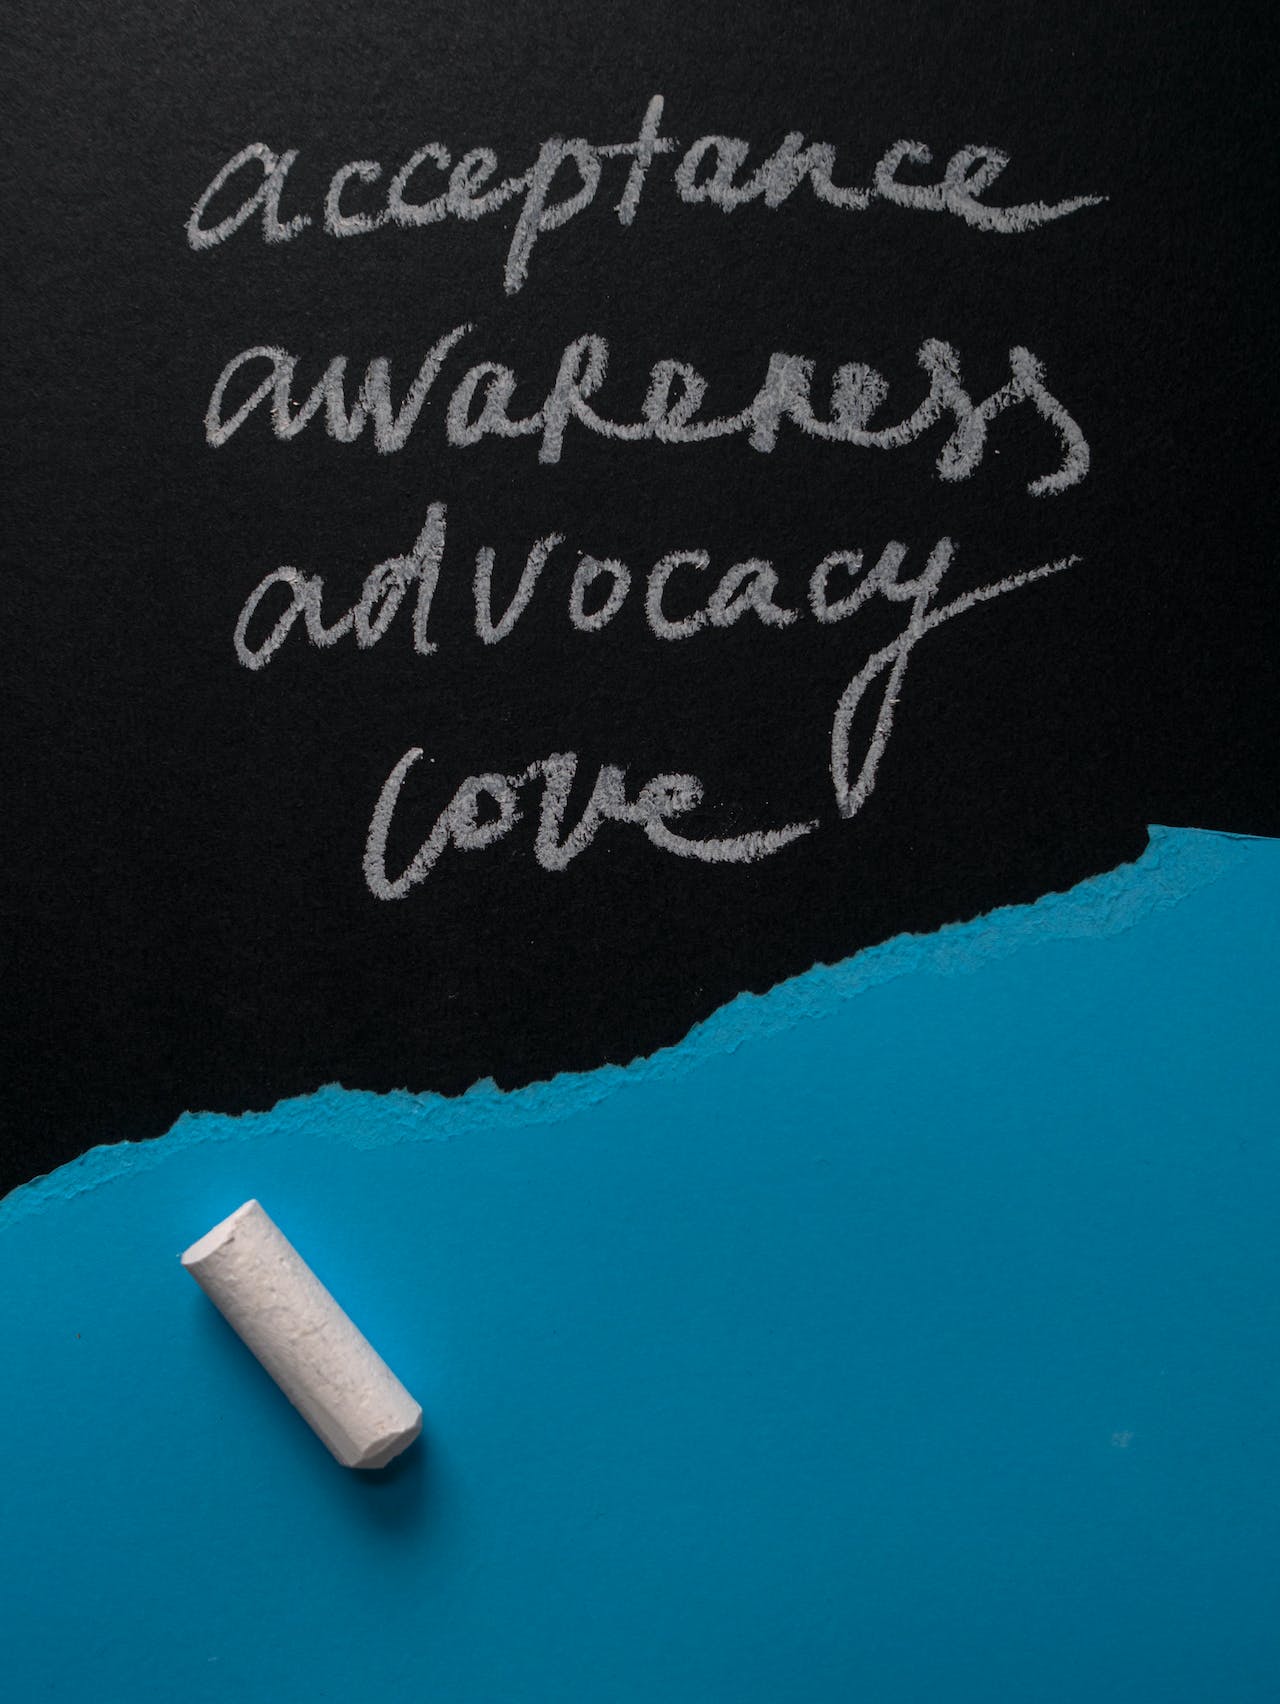 acceptance
awareness
advocacy
love